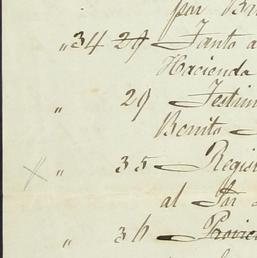 por Br
„ 34 29 Tanto a
Hacienda
„ 29 Testim
Benito
„ 35 Regist
al Sr
„ 36 Provie